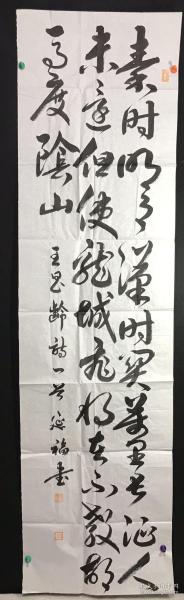 秦时明月汉时关万里长征人
未还但使龙城飞将在不教胡
马度陰山
王昌齡詩一首延福書